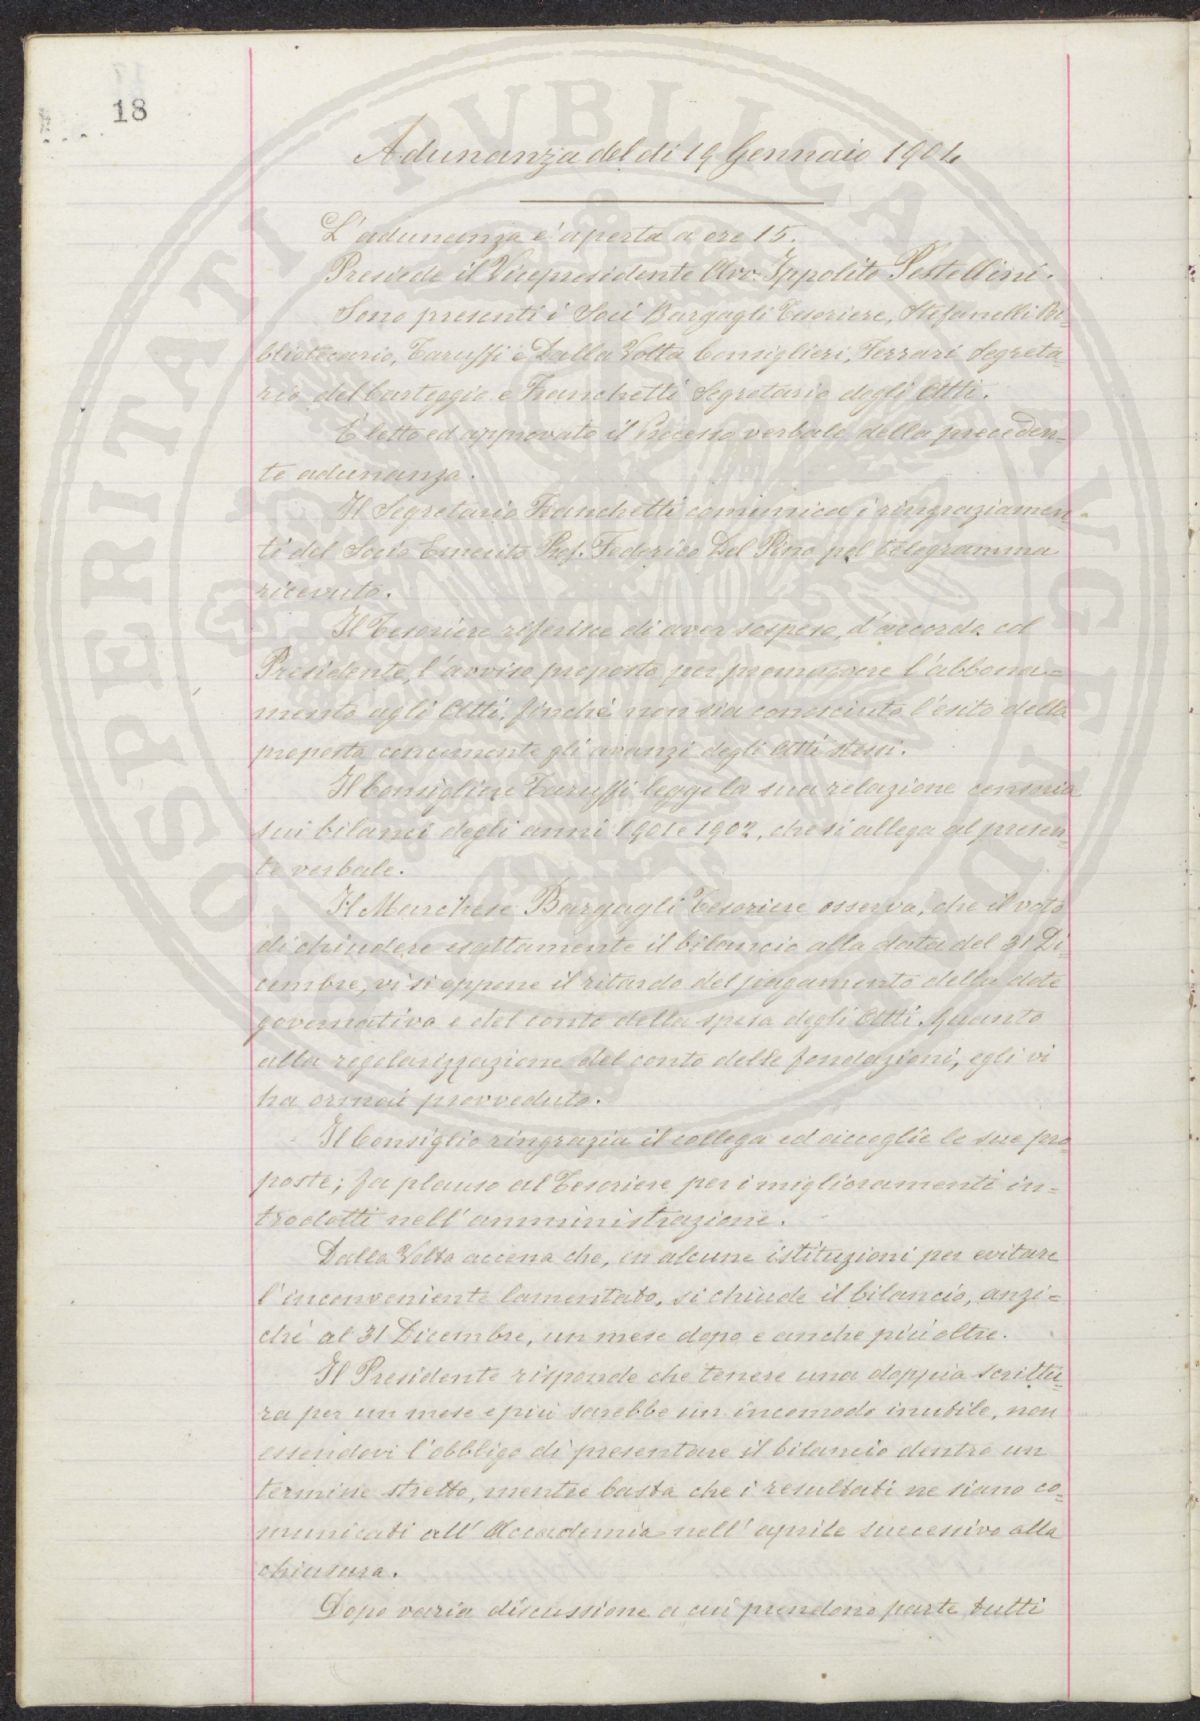 18
Adunanza del dì 19 Gennaio 1904
L'adunanza è aperta a ore 15.
Presiede il Vicepresidente Avv. Ippolito Pestellini.
Sono presenti i Soci Bargagli Tesoriere, Stefanelli Bi=
bliotecario, Taruffi e Dalla Volta Consiglieri, Ferrari Segreta=
rio del Carteggio e Franchetti Segretario degli Atti.
È letto ed approvato il Processo verbale della preceden=
te adunanza.
Il Segretario Franchetti comunica i ringraziamen=
ti del Socio Emerito Prof. Federico Del Pino pel telegramma
ricevuto.
Il Tesoriere riferisce di aver sospeso, d'accordo col
Presidente, l'avviso proposto per promuovere l'abbona=
mento agli Atti, finché non sia conosciuto l'esito della
proposta concernente gli avanzi degli Atti stessi.
Il Consigliere Taruffi legge la sua relazione censoria
sui bilanci degli anni 1901 e 1902, che si allega al presen=
te verbale.
Il Marchese Bargagli Tesoriere osserva, che il voto
di chiudere esattamente il bilancio alla data del 31 Di=
cembre, vi si oppone il ritardo del pagamento della dote
governativa e del conto della spesa degli Atti. Quanto
alla regolarizzazione del conto delle fondazioni, egli vi
ha ormai provveduto.
Il Consiglio ringrazia il collega ed accoglie le sue pro=
poste; fa plauso al Tesoriere per i miglioramenti in=
trodotti nell'amministrazione.
Dalla Volta accena che, in alcune istituzioni per evitare
l'inconveniente lamentato, si chiude il bilancio, anzi=
ché al 31 Dicembre, un mese dopo e anche più oltre.
Il Presidente risponde che tenere una doppia scrittu=
ra per un mese e più sarebbe un incomodo inutile, non
essendovi l'obbligo di presentare il bilancio dentro un
termine stretto, mentre basta che i resultati ne siano co=
municati all'Accademia nell'aprile successivo alla
chiusura.
Dopo varia discussione a cui prendono parte tutti
PROSPERITATI PVBLICAE AVGENDAE